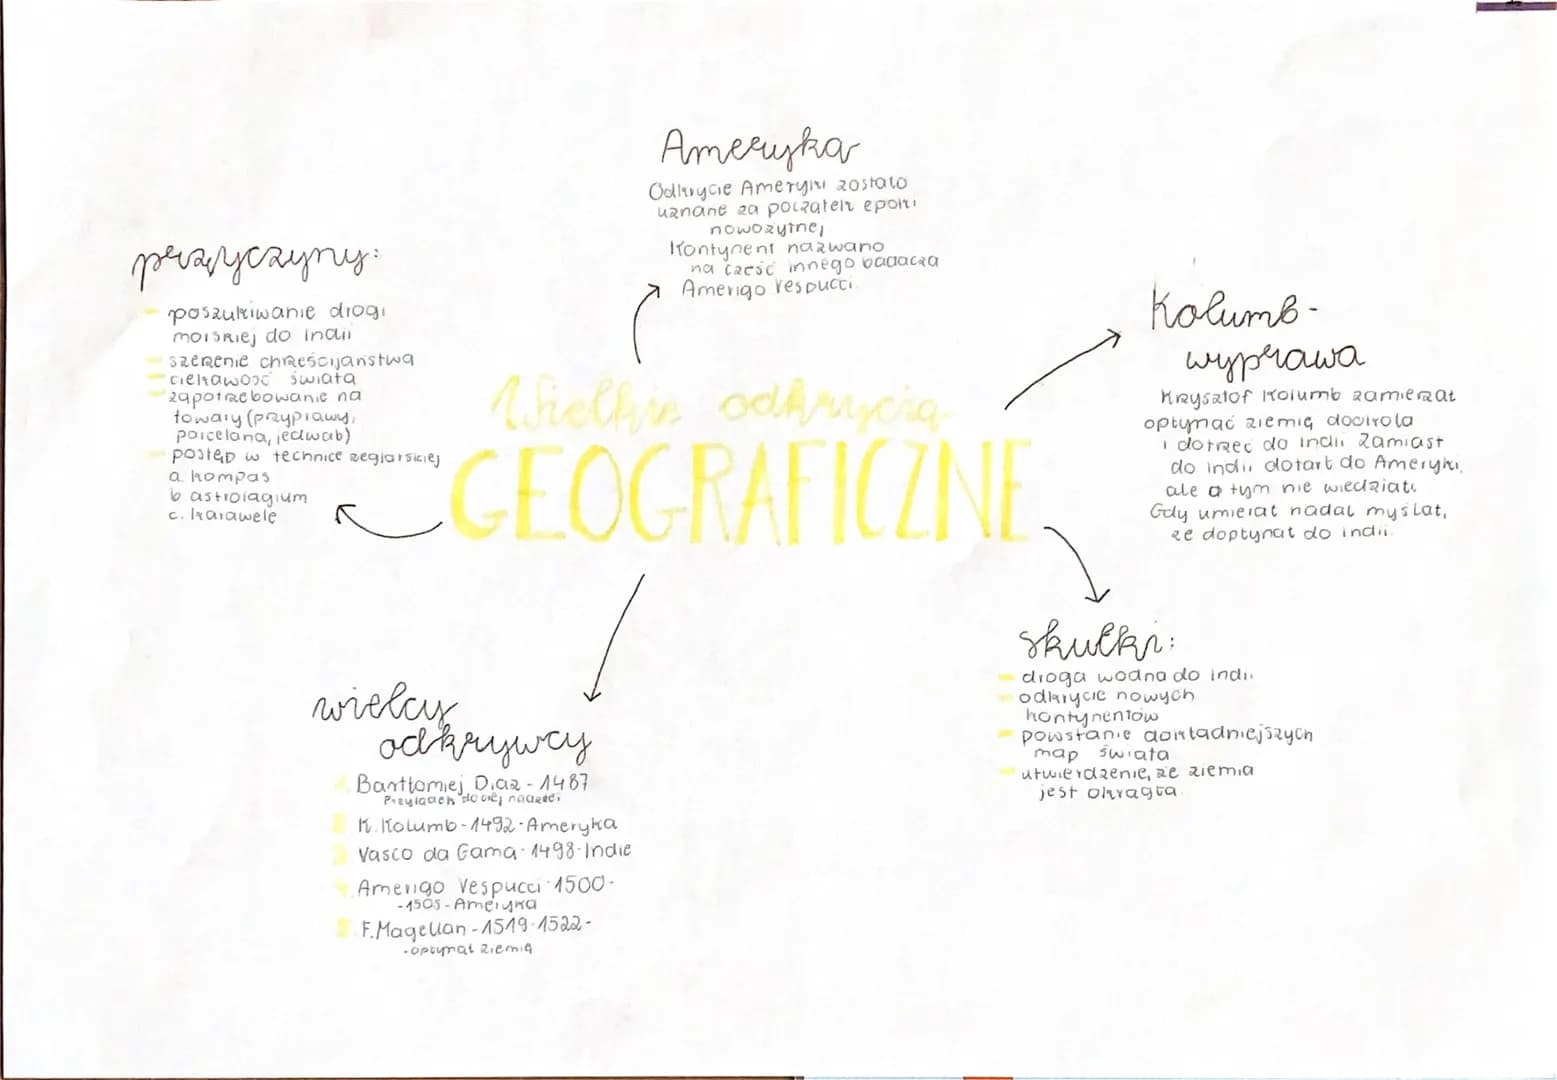 Wielkie odkrycia
GEOGRAFICZNE
Ameryka
Odkrycie Ameryki zostało
uznane za początek epoki
nowożytnej
Kontynent nazwano
na cześć innego badacza
Amerigo Vespucci.
przyczyny:
- poszukiwanie drogi
morskiej do indii
- szerzenie chrześcijaństwa
- ciekawość świata
- zapotrzebowanie na
towary (przyprawy,
porcelana, jedwab)
- postęp w technice żeglarskiej
a. kompas
b astrolagium
c. karawele
Kolumb-
wyprawa
Krzysztof Kolumb zamierzał
opłynąć ziemię dookoła
i dotrzeć do indii zamiast
do indii dotarł do Ameryki,
ale o tym nie wiedział.
Gdy umierał nadal myślał,
że dopłynął do indii.
skutki:
- droga wodna do indii
- odkrycie nowych
kontynentów
- powstanie dokładniejszych
map świata
- utwierdzenie, że ziemia
jest okrągła.
wielcy
odkrywcy
1. Bartłomiej Diaz - 1487
Przylądek dobrej nadziei
2 K. Kolumb - 1492 - Ameryka
3 Vasco da Gama - 1498 - Indie
4. Amerigo Vespucci - 1500 -
- 1505 - Ameryka
5. F. Magellan - 1519 - 1522 -
- opłynął ziemię